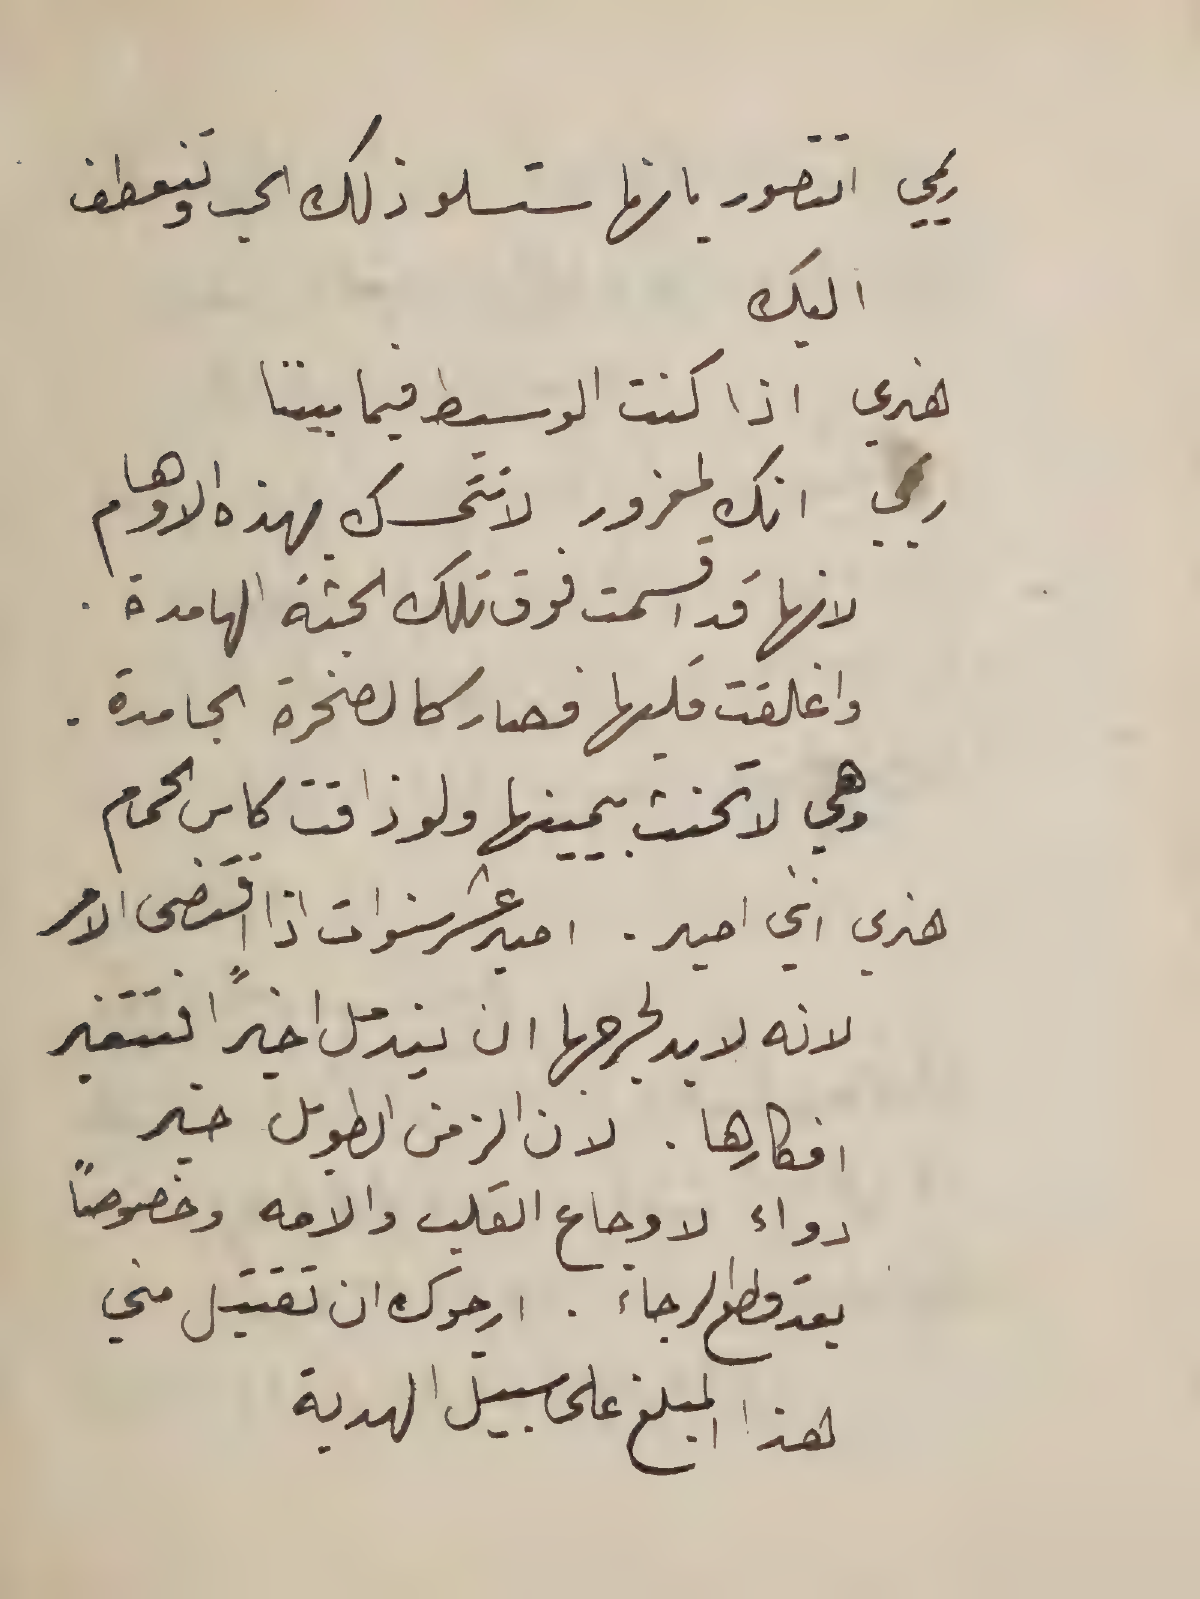 ريمي اتتصور بانها ستسلو ذلك الحب وتنعطف
اليك
هنري اذا كنت الوسيط فيما بيننا
ريمي انك لمغرور لا تتمسك بهذه الاوهام
لانها قد اقسمت فوق تلك الجثة الهامدة .
واغلقت قلبها فصار كالصخرة الجامدة .
وهي لا تحنث بيمينها ولو ذاقت كاس الحمام
هنري انني اصبر . اصبر عشر سنوات اذا اقتضى الامر
لانه لا بد لجرحها ان يندمل اخيراً فتتغير
افكارها . لان الزمن الطويل خير
دواء لاوجاع القلب والامه وخصوصاً
بعد قطع الرجاء . ارجوك ان تقبل مني
هذا المبلغ على سبيل الهدية